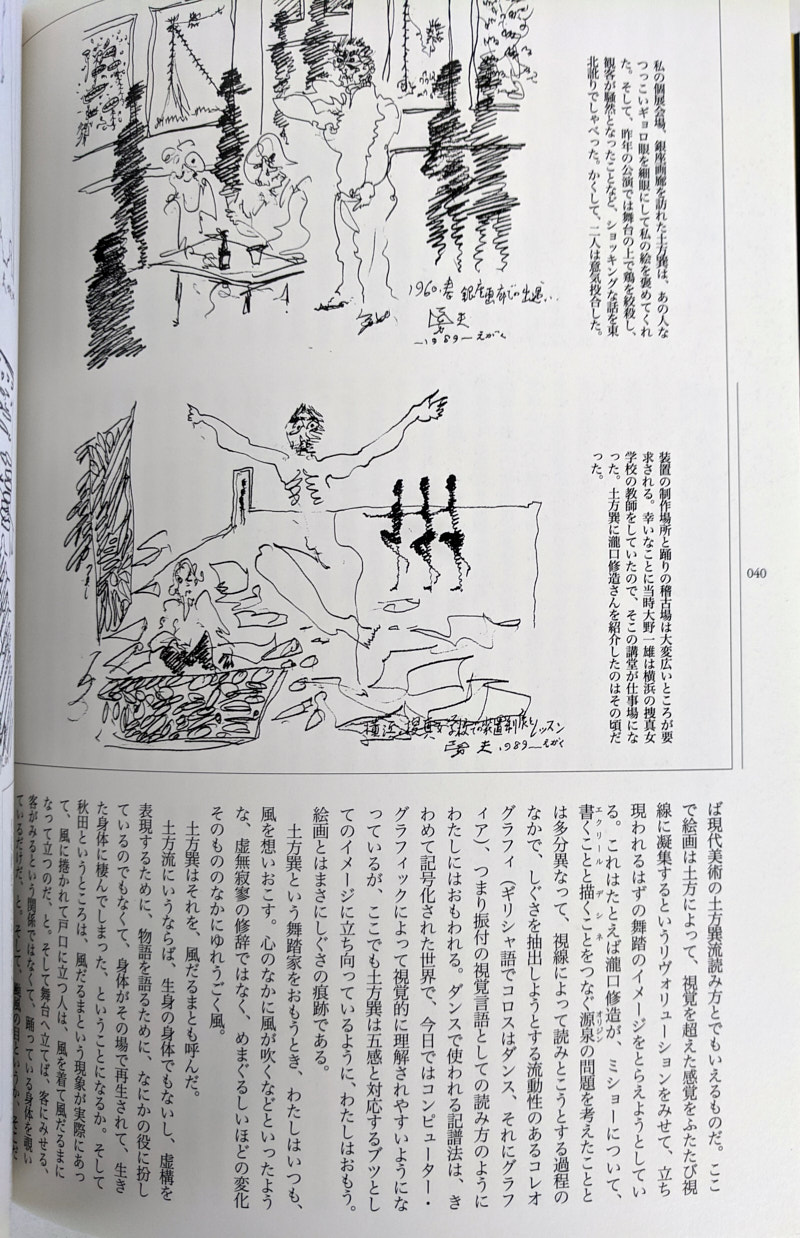 私の個展会場、銀座画廊を訪れた土方巽は、あの人な
つっこいギョロ眼を細眼にして私の絵を褒めてくれ
た。そして、昨年の公演では舞台の上で鶏を絞殺し、
観客が騒然となったことなど、ショッキングな話を東
北訛りでしゃべった。かくして、二人は意気投合した。
1960.春 銀座画廊での出逢い..
―1989―えがく
040
装置の制作場所と踊りの稽古場は大変広いところが要
求される。幸いなことに当時大野一雄は横浜の捜真女
学校の教師をしていたので、そこの講堂が仕事場にな
った。土方巽に瀧口修造さんを紹介したのはその頃だ
った。
横浜、捜真女学校での装置制作とレッスン
1989―えがく
ば現代美術の土方巽流読み方とでもいえるものだ。ここ
で絵画は土方によって、視覚を超えた感覚をふたたび視
線に凝集するというリヴォリューションをみせて、立ち
現われるはずの舞踏のイメージをとらえようとしてい
る。これはたとえば瀧口修造が、ミショーについて、
書くことと描くことをつなぐ源泉の問題を考えたことと
エクリール デシネ オリジン
は多分異なって、視線によって読みとこうとする過程の
なかで、しぐさを抽出しようとする流動性のあるコレオ
グラフィ（ギリシャ語でコロスはダンス、それにグラフ
ィア）、つまり振付の視覚言語としての読み方のように
わたしにはおもわれる。ダンスで使われる記譜法は、き
わめて記号化された世界で、今日ではコンピューター・
グラフィックによって視覚的に理解されやすいようにな
っているが、ここでも土方巽は五感と対応するブツとし
てのイメージに立ち向っているように、わたしはおもう。
絵画とはまさにしぐさの痕跡である。
土方巽という舞踏家をおもうとき、わたしはいつも、
風を想いおこす。心のなかに風が吹くなどといったよう
な、虚無寂寥の修辞ではなく、めまぐるしいほどの変化
そのもののなかにゆれうごく風。
土方巽はそれを、風だるまとも呼んだ。
土方流にいうならば、生身の身体でもないし、虚構を
表現するために、物語を語るために、なにかの役に扮し
ているのでもなくて、身体がその場で再生されて、生き
た身体に棲んでしまった、ということになるか。そして
秋田というところは、風だるまという現象が実際にあっ
て、風に捲かれて戸口に立つ人は、風を着て風だるまに
なって立つのだ、と。そして舞台へ立てば、客にみせる、
客がみるという関係ではなくて、踊っている身体を覗い
ているだけだ、と。そして、